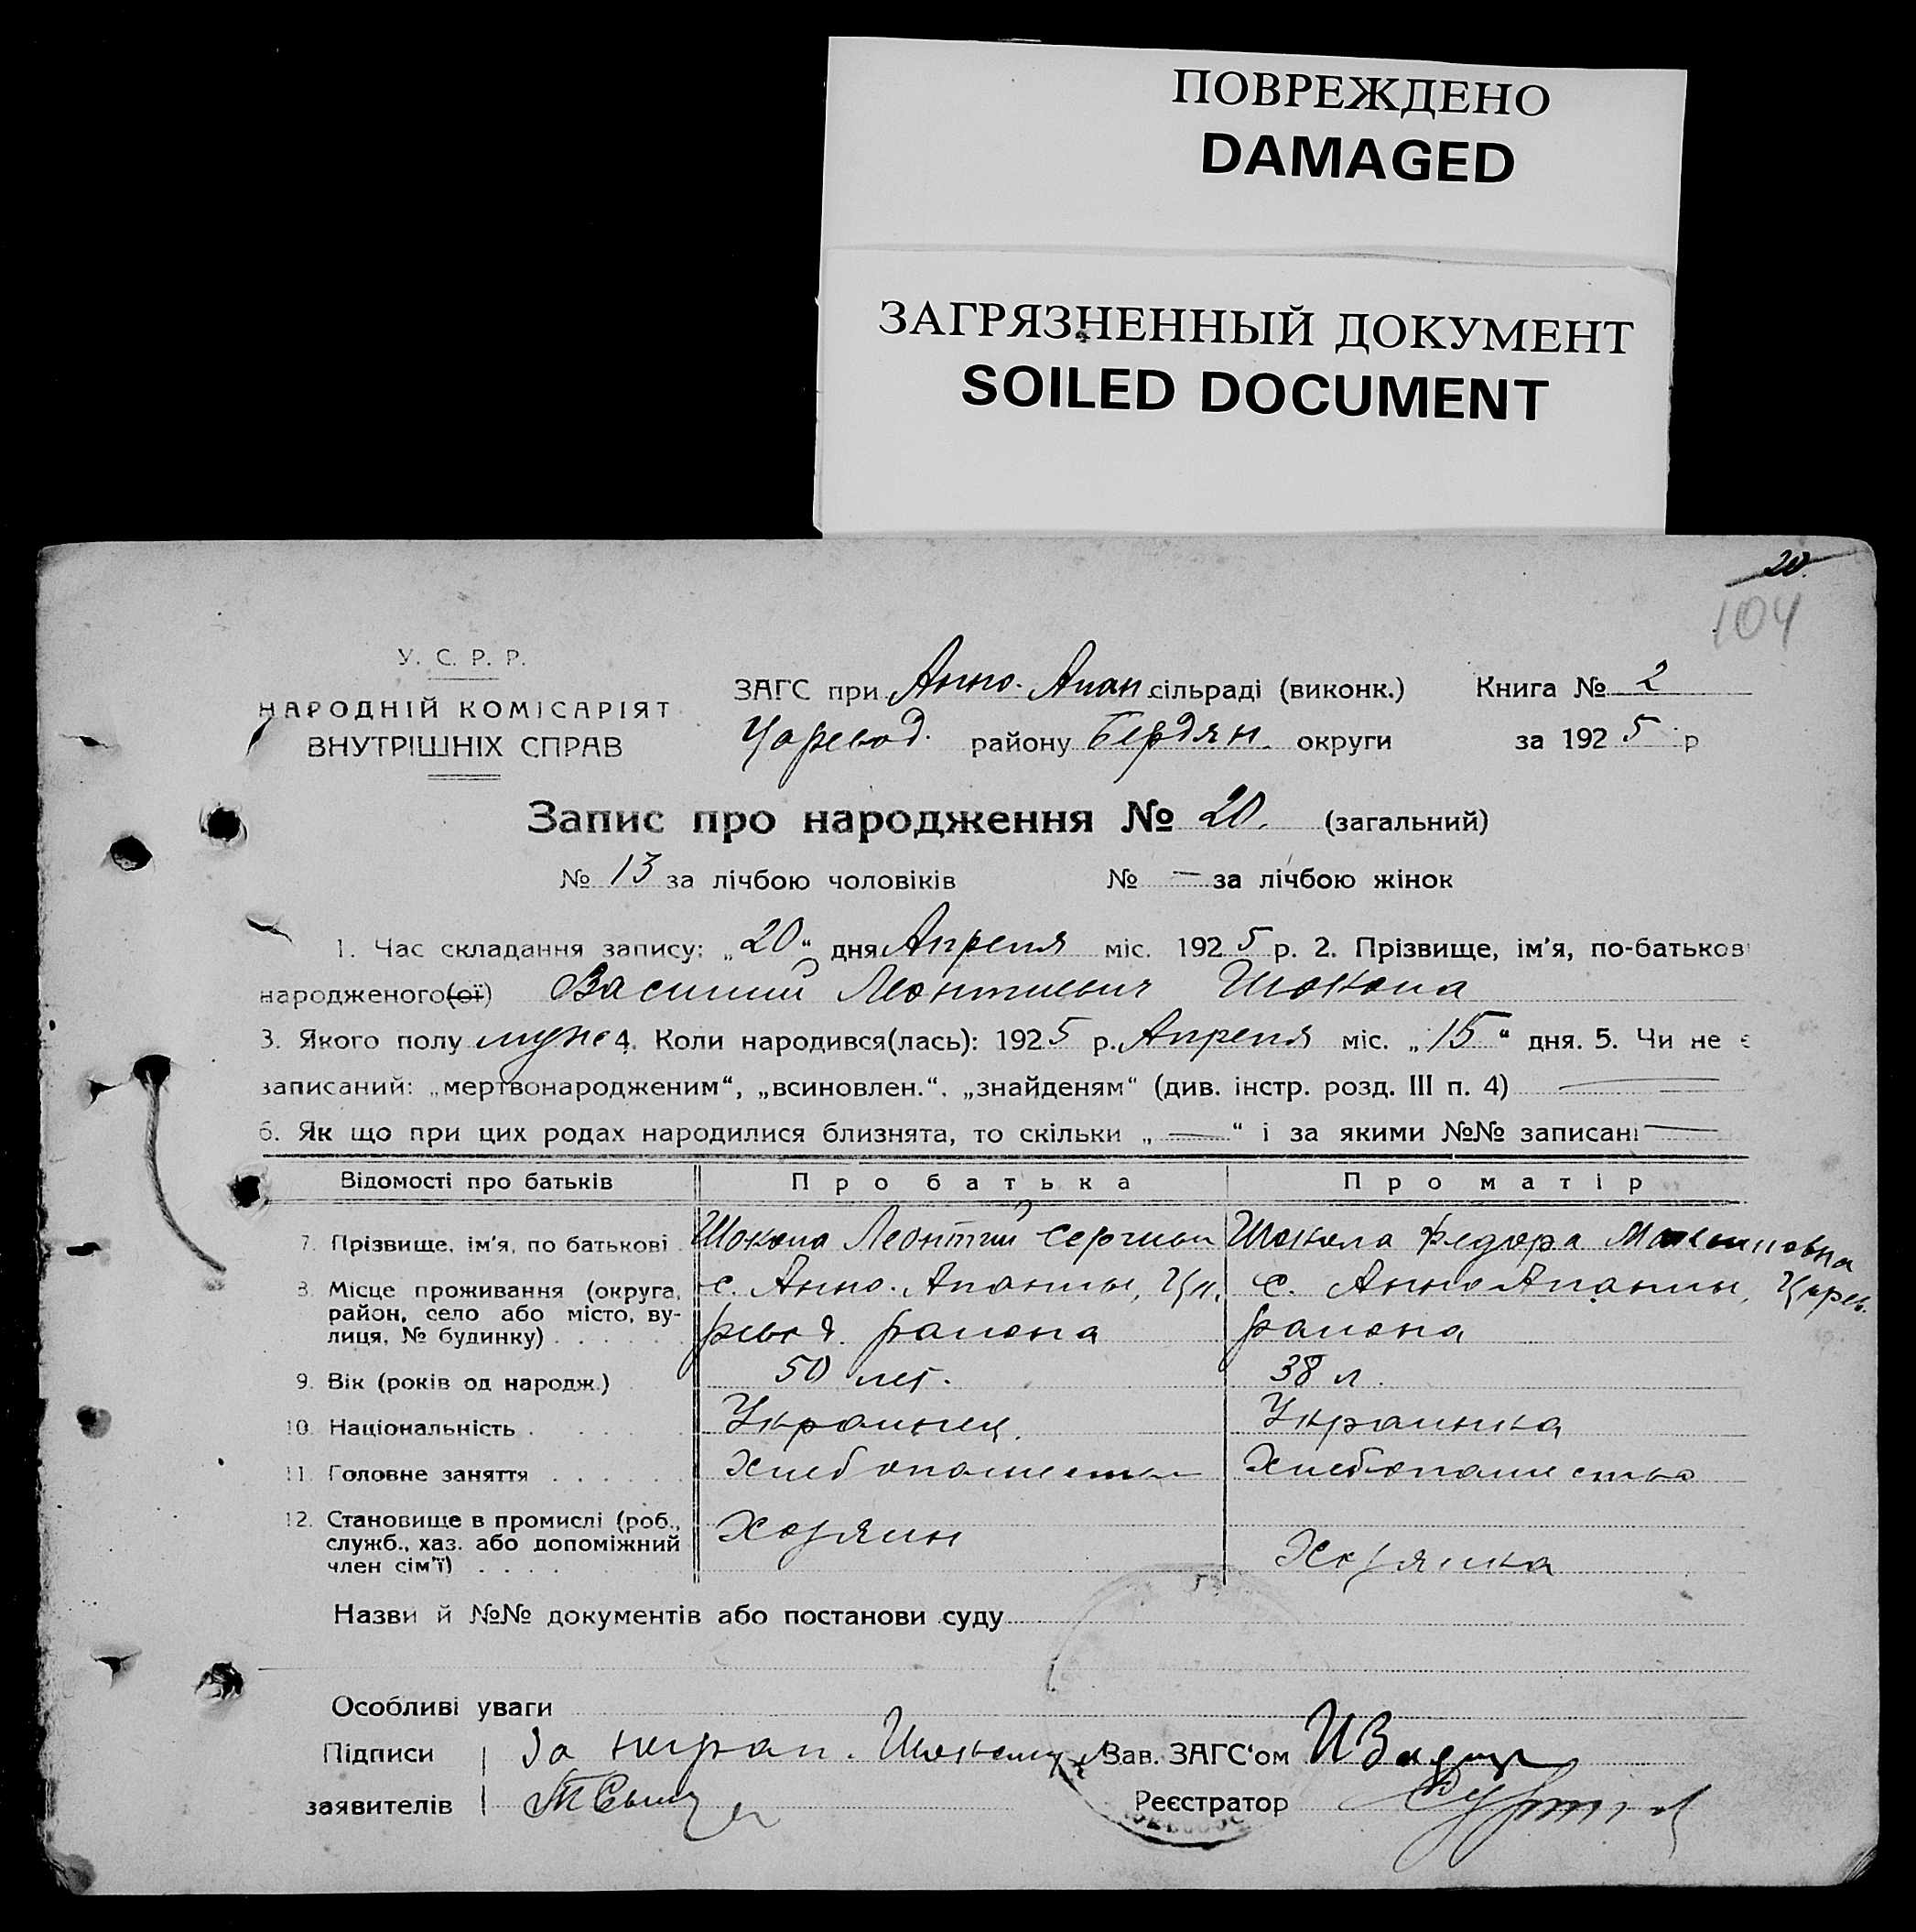 ПОВРЕЖДЕНО
DAMAGED
ЗАГРЯЗНЕННЫЙ ДОКУМЕНТ
SOILED DOCUMENT
20.
104
У. С. Р. Р.
НАРОДНІЙ КОМІСАРІЯТ
ВНУТРІШНІХ СПРАВ
ЗАГС при Анно-Апан сільраді (виконк.) Книга № 2
Царевод. району Бердян. округи за 1925 р
Запис про народження № 20. (загальний)
№ 13 за лічбою чоловіків № — за лічбою жінок
1. Час складання запису: „20“ дня Апреля міс. 1925 р. 2. Прізвище, ім'я, по-батькові
народженого(ої) Василий Леонтиевич Шокола
3. Якого полу муж 4. Коли народився(лась): 1925 р. Апреля міс. „15“ дня. 5. Чи не є
записаний: „мертвонародженим“, „всиновлен.“, „знайденям“ (див. інстр. розд. III п. 4) —
6. Як що при цих родах народилися близнята, то скільки „—“ і за якими №№ записані —
Відомості про батьків Про батька Про матір
7. Прізвище, ім'я, по батькові Шокола Леонтий Шокола Федора
8. Місце проживання (округа, район, село або місто, вулиця, № будинку) с. Анно-Апанлы, Ца- с. Анно Апанлы, Царев.
ревод. района района
9. Вік (років од народж.) 50 лет. 38 л.
10. Національність Украинец. Украинка
11. Головне заняття Хлебопашество Хлебопашество
12. Становище в промислі (роб., служб., хаз. або допоміжний член сім'ї) Хозяин Хозяйка
Назви й №№ документів або постанови суду
Особливі уваги
Підписи За неграм. Зав. ЗАГС'ом
заявителів Реєстратор